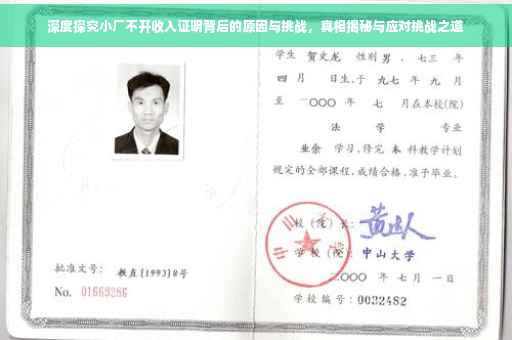 深度探究小厂不开收入证明背后的原因与挑战，真相揭秘与应对挑战之道
学生 贺文龙 性别 男 ，七三 年
四 月 日生，于 九七 年 九 月
至 二〇〇〇 年 七 月在本校(院)
法 学 专业
业余 学习，修完 本 科教学计划
规定的全部课程，成绩合格，准予毕业。
校（院）长：
学校（院）：中山大学
批准文号： 教直[1993]8号
二〇〇〇 年 七 月 一 日
No. 01669286
学校编号：0032482